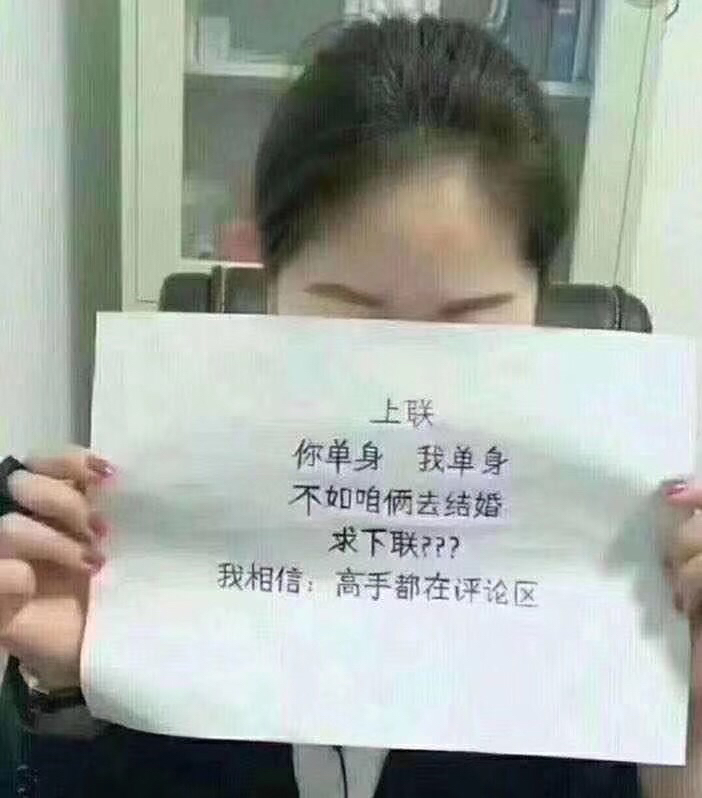 上联
你单身 我单身
不如咱俩去结婚
求下联???
我相信：高手都在评论区